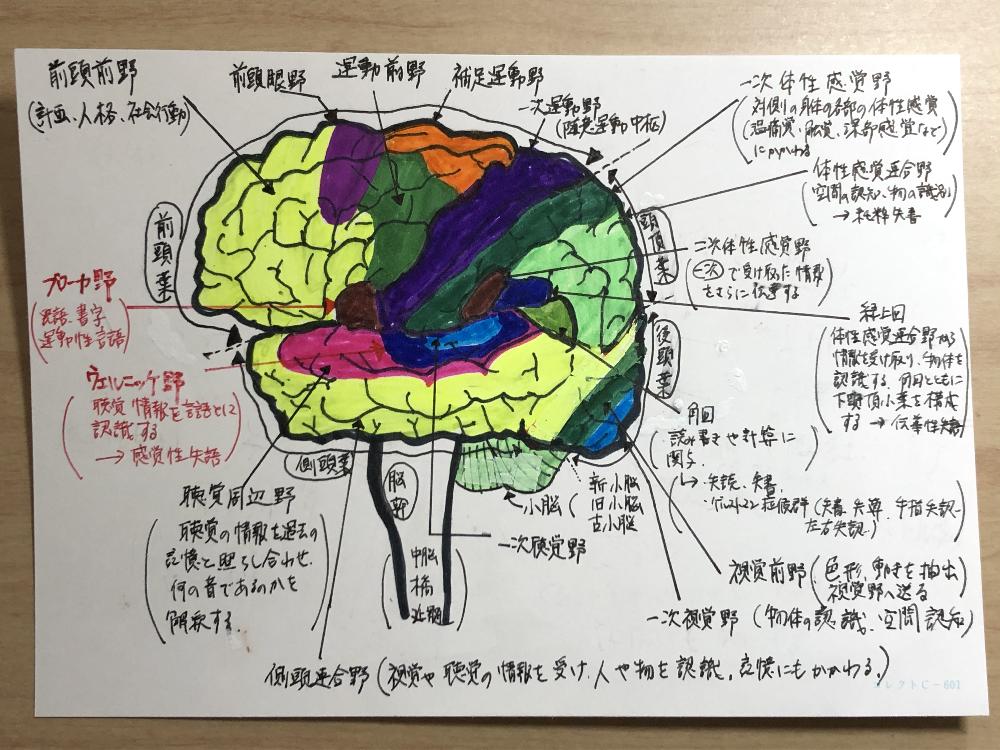 前頭前野
(計画、人格、社会行動)
前頭眼野
運動前野
補足運動野
一次運動野
(随意運動中枢)
一次体性感覚野
対側の身体の各部の体性感覚
(温痛覚、触覚、深部感覚など
にかかわる
体性感覚連合野
(空間の認知、物の識別
→純粋失書
二次体性感覚野
(一次で受け取った情報
をさらに伝達する
前頭葉
頭頂葉
後頭葉
側頭葉
ブローカ野
書字
運動性言語
ウェルニッケ野
聴覚情報を言語として
認識する
→感覚性失語
縁上回
体性感覚連合野から
情報を受け取り、物体を
認識する、角回とともに
下頭頂小葉を構成
する→伝導性失語
角回
読み書きや計算に
関与。
→失読、失書、
ゲルストマン症候群(失書、失算、手指失認
左右失認。)
聴覚周辺野
聴覚の情報を過去の
記憶と照らし合わせ、
何の音であるのかを
解釈する。
脳幹
中脳
橋
延髄
小脳
新小脳
旧小脳
古小脳
一次聴覚野
視覚前野(色形、動きを抽出
視覚野へ送る
一次視覚野(物体の認識、空間認知)
側頭連合野(視覚や聴覚の情報を受け、人や物を認識。記憶にもかかわる。)
コレクトC-601